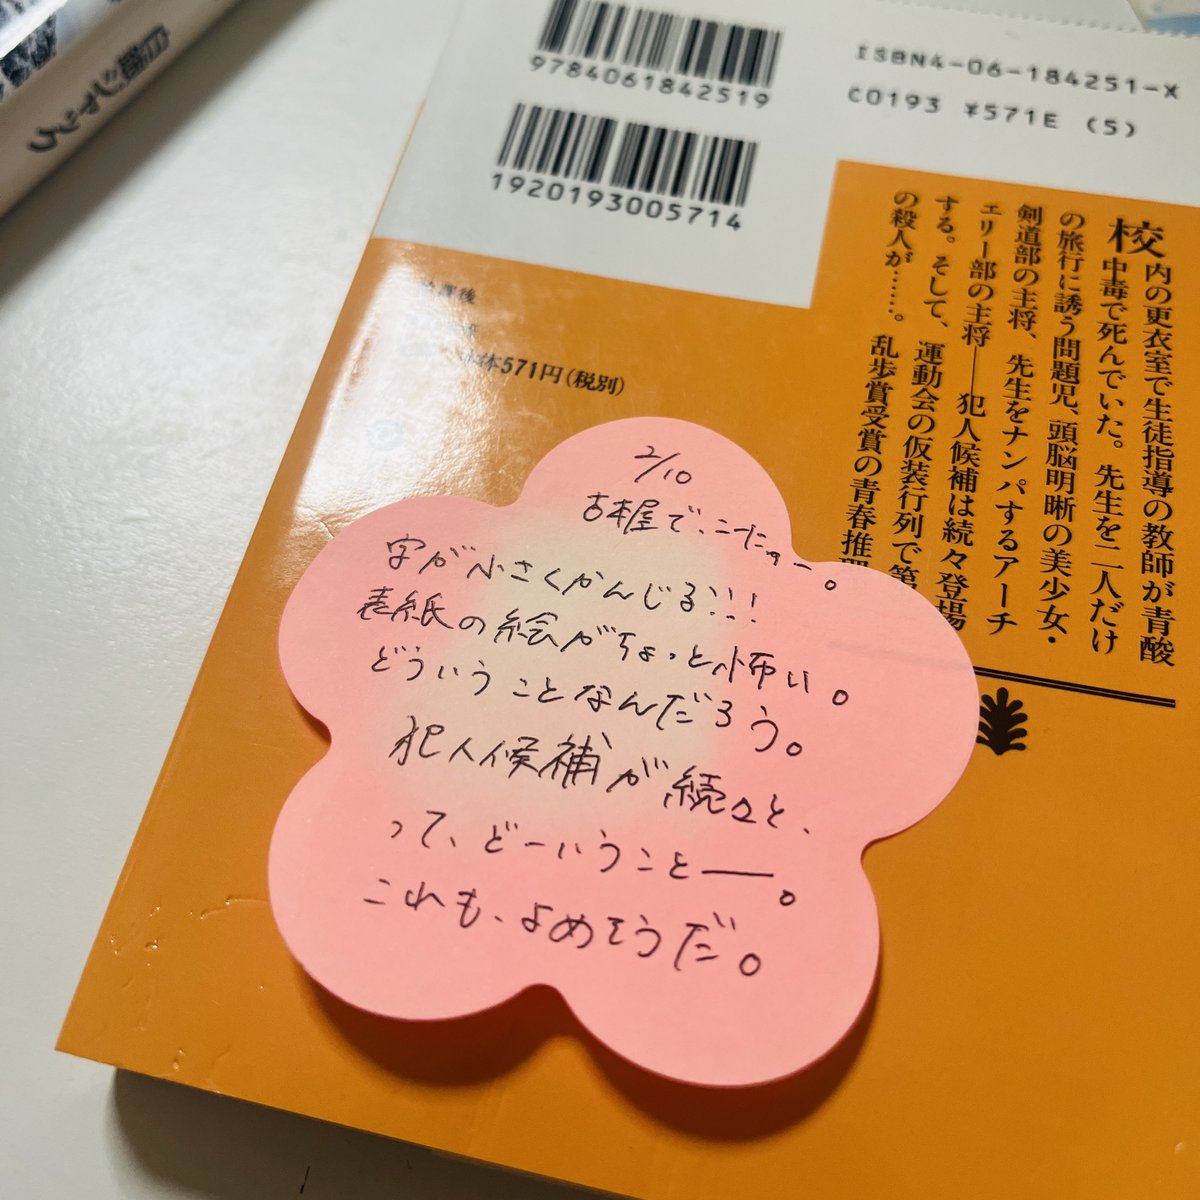 白銀ジャック
9784061842519
1920193005714
ISBN4-06-184251-X
C0193 ¥571E (5)
校内の更衣室で生徒指導の教師が青酸
中毒で死んでいた。先生を二人だけ
の旅行に誘う問題児、頭脳明晰の美少女・
剣道部の主将、先生をナンパするアーチ
ェリー部の主将――犯人候補は続々登場
する。そして、運動会の仮装行列で第
の殺人が……。乱歩賞受賞の青春推理
放課後
本体571円(税別)
2/10
古本屋で、こたぇー。
字が小さくかんじる!!!
表紙の絵がちょっと怖い。
どういうことなんだろう。
犯人候補が続々と、
って、どーいうことー。
これも、よめそうだ。